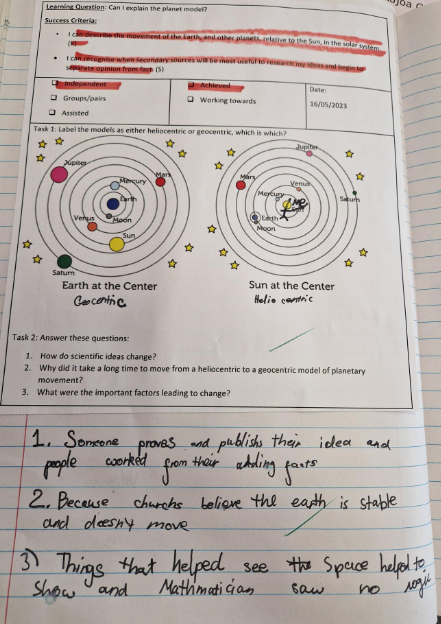 Learning Question: Can I explain the planet model?
Success Criteria:
I can describe the movement of the Earth, and other planets, relative to the Sun, in the solar system.
(K)
I can recognise when secondary sources will be most useful to research my ideas and begin to
separate opinion from fact (S)
Independent
Groups/pairs
Assisted
Achieved
Working towards
Date:
16/05/2023
Task 1: Label the models as either heliocentric or geocentric, which is which?
Jupiter
Mercury
Mars
Earth
Moon
Venus
Sun
Saturn
Earth at the Center
Geocentric
Jupiter
Mars
Venus
Mercury
Saturn
Earth
Moon
Sun at the Center
Helio centric
Task 2: Answer these questions:
1. How do scientific ideas change?
2. Why did it take a long time to move from a heliocentric to a geocentric model of planetary
movement?
3. What were the important factors leading to change?
1. Someone proves and publishs their idea and
people worked from their adding facts
2. Because churchs believe the earth is stable
and doesnt move
3) Things that helped see the Space helped to
Show and Mathmatician saw no